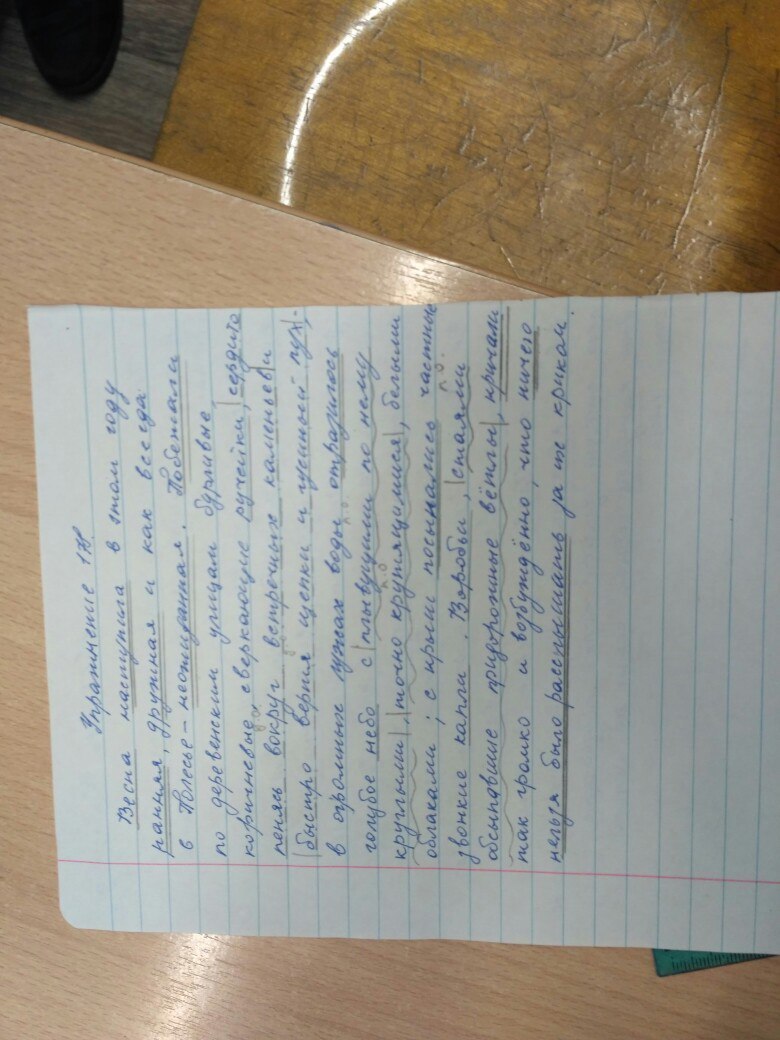 Упражнение 178
Весна наступила в этом году
ранняя, дружная и как всегда
в Полесье - неожиданная. Побежали
по деревенским улицам бурливые
коричневые, сверкающие ручейки, сердито
пенясь вокруг встречных каменьев и
быстро вертя щепки и гусиный пух;
в огромных лужах воды отразилось
голубое небо с плывущими по нему
круглыми, точно крутящимися, белыми
облаками; с крыш посыпались частные
звонкие капли. Воробьи, стаями
обсыпавшие придорожные вётлы, кричали
так громко и возбуждённо, что ничего
нельзя было расслышать за их криком.